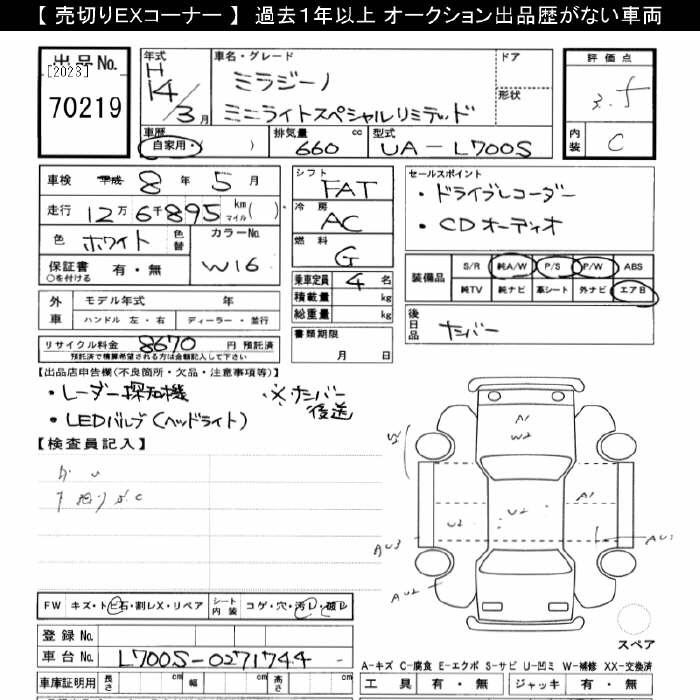 【 売切りEXコーナー 】 過去1年以上 オークション出品歴がない車両
出品No.
[2023]
70219
年式
H
14/3月
車名・グレード
ミラジーノ
ミニライトスペシャルリミテッド
ドア
形状
評価点
3.5
内装
C
車歴
自家用・( )
排気量
660 cc
型式
UA-L700S
車検 平成 8年 5月
走行 12万6千895 km マイル( )
色 ホワイト 色替
カラーNo.
W16
保証書 有・無
○を付ける
シフト
FAT
冷房
AC
燃料
G
セールスポイント
・ドライブレコーダー
・CDオーディオ
装備品 S/R 純A/W P/S P/W ABS
純TV 純ナビ 革シート 外ナビ エアB
外車 モデル年式 年
ハンドル 左・右 ディーラー・並行
乗車定員 4 名
積載量 kg
総重量 kg
書類期限
月 日
後日品
ナンバー
リサイクル料金 8670 円 預託済
預託済で精算希望される方は金額記入して下さい
【出品店申告欄(不良箇所・欠品・注意事項等)】
・レーダー探知機 ・※ナンバー後送
・LEDバルブ(ヘッドライト)
【検査員記入】
A1
W2
U2
U2
A1
AU3
AU2
FW キズ・トビ石・割レX・リペア シート内装 コゲ・穴・汚レ・破レ
登録No.
車台No. L700S-0271744-
車庫証明用 長さ cm 幅 cm 高さ cm
スペア
A-キズ C-腐食 E-エクボ S-サビ U-凹ミ W-補修 XX-交換済
工具 有・無 ジャッキ 有・無